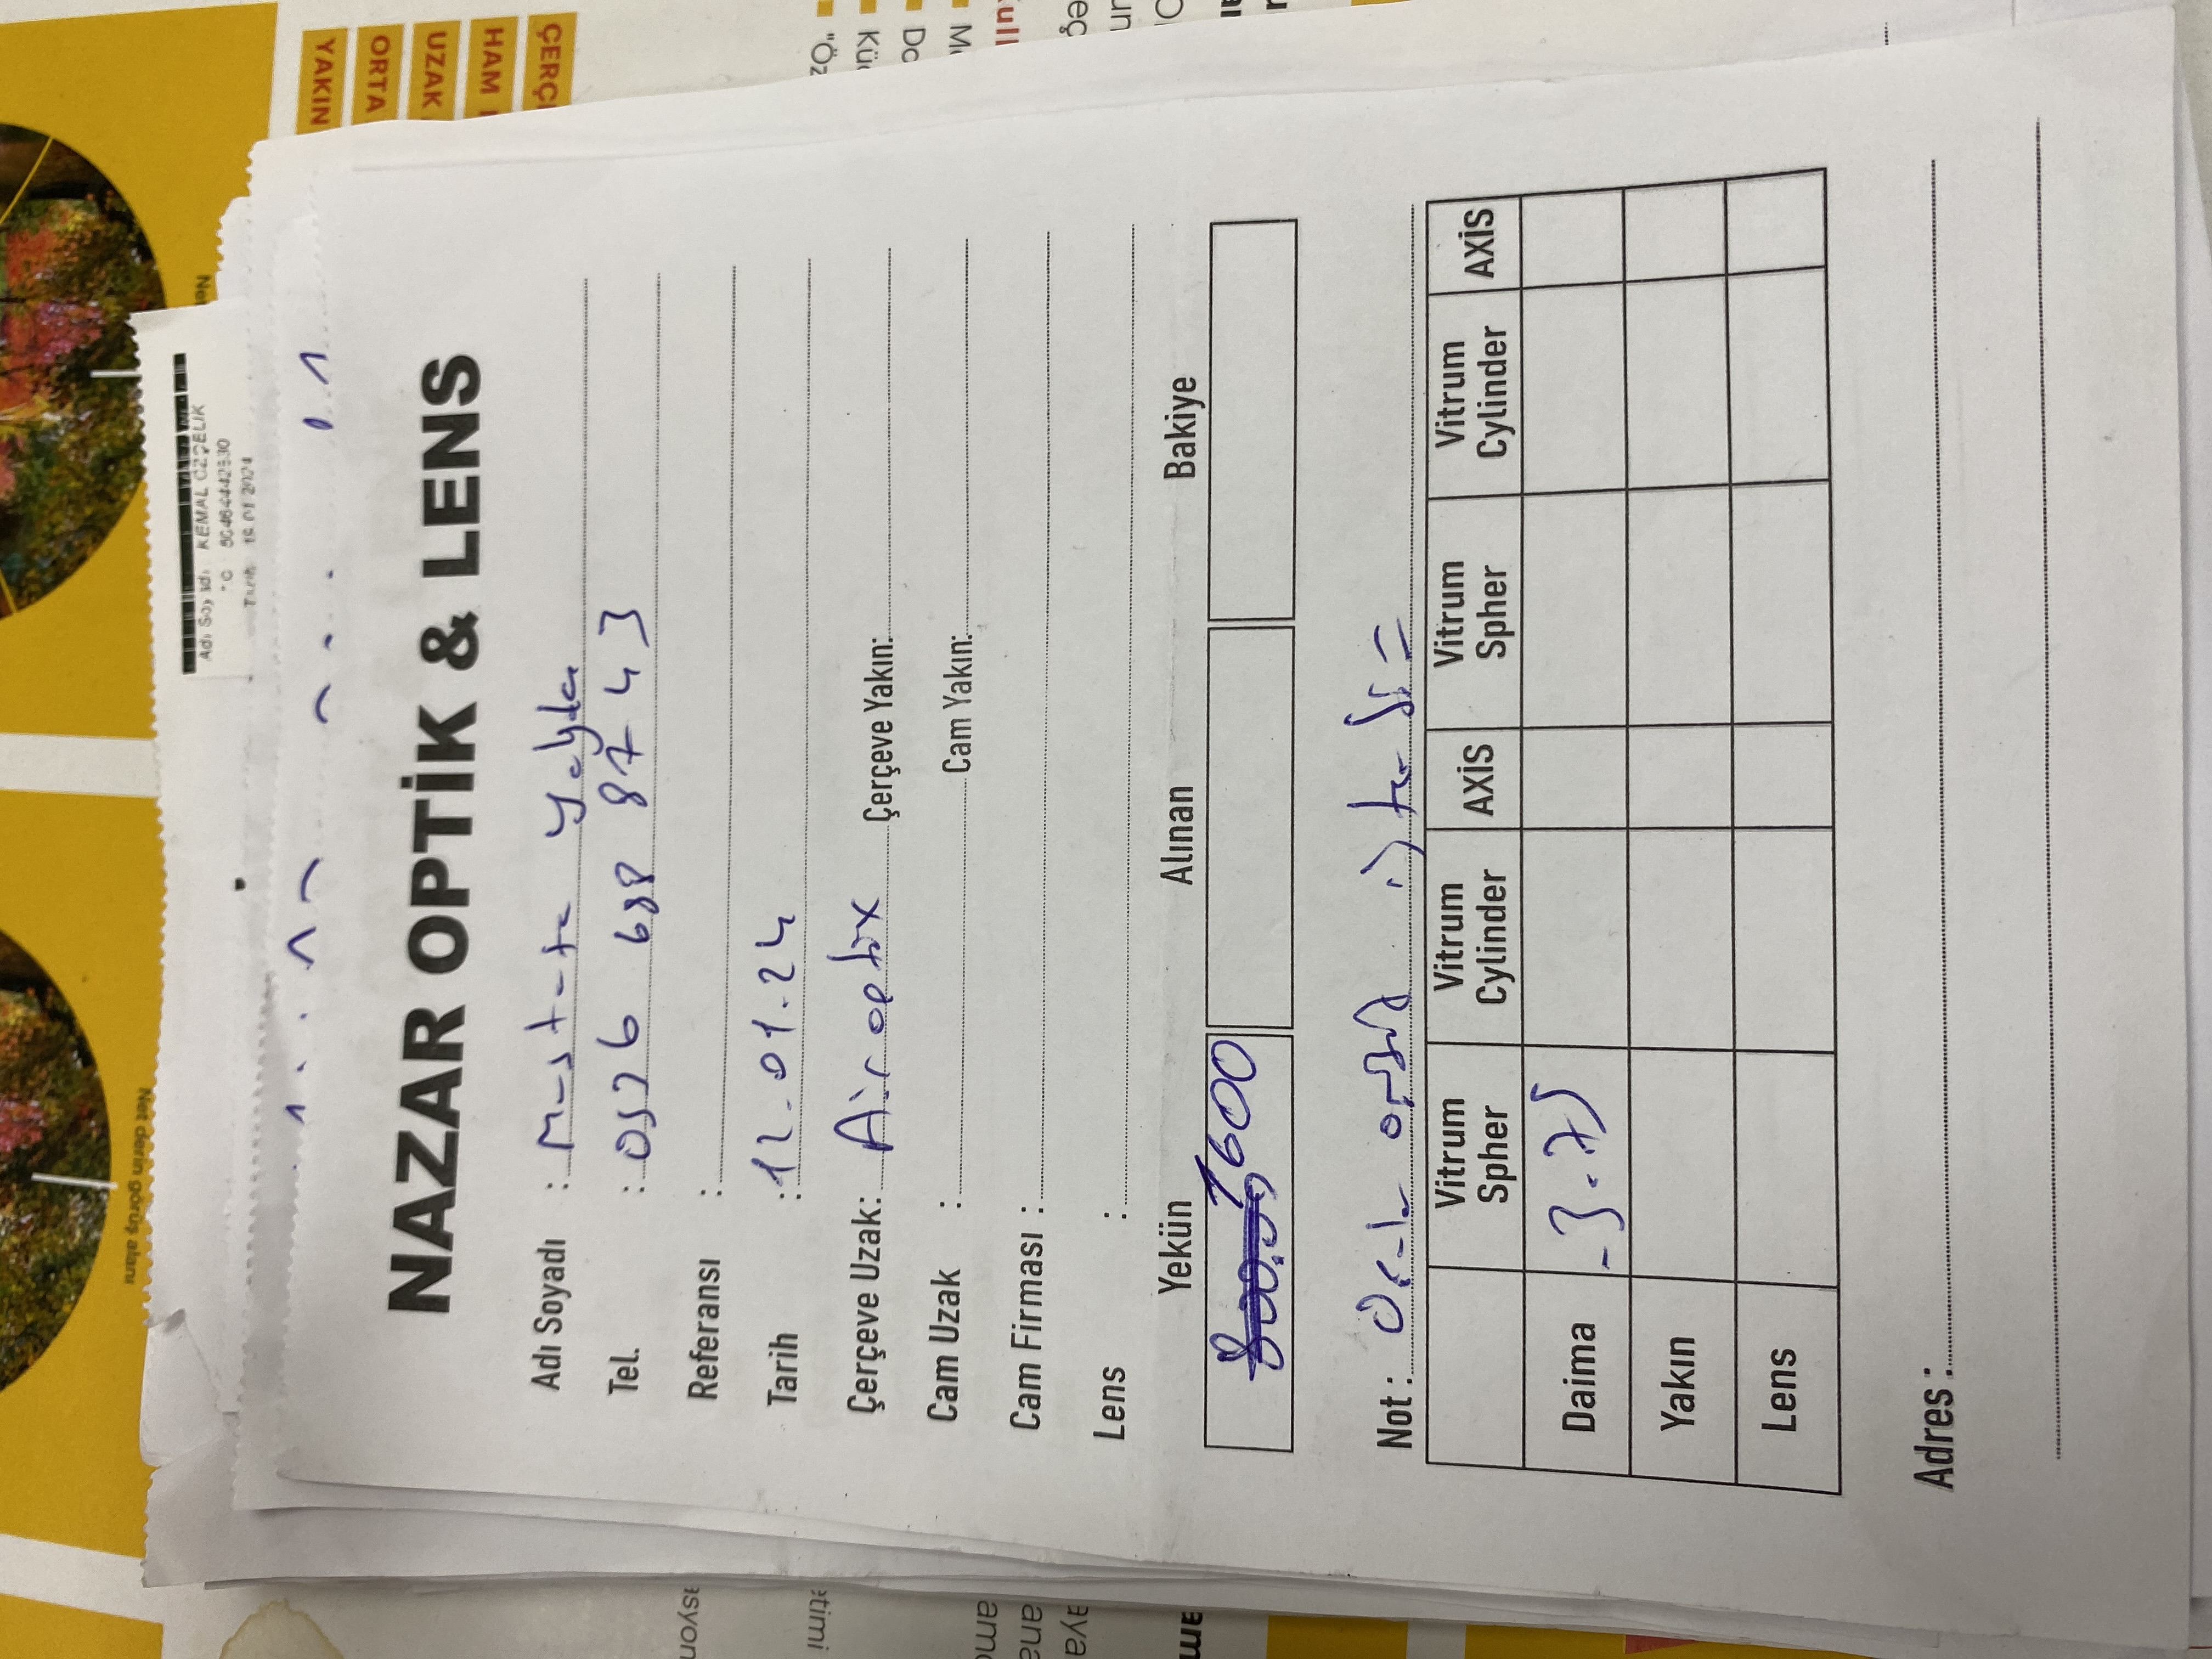 Net derin görüş alanı
Adı Soyadı KEMAL ÖZÇELİK
YAKIN
ORTA
UZAK
HAM
NAZAR OPTİK & LENS
Adı Soyadı : Mustafa
Tel. : 0536 688 87 43
Referansı :
Tarih : 12.01.24
Çerçeve Uzak: Air optix Çerçeve Yakın:
Cam Uzak : Cam Yakın:
Cam Firması :
Lens :
Yekün Alınan Bakiye
800.00 1600
Not :
Vitrum Spher Vitrum Cylinder AXİS Vitrum Spher Vitrum Cylinder AXİS
Daima -3.75
Yakın
Lens
Adres :